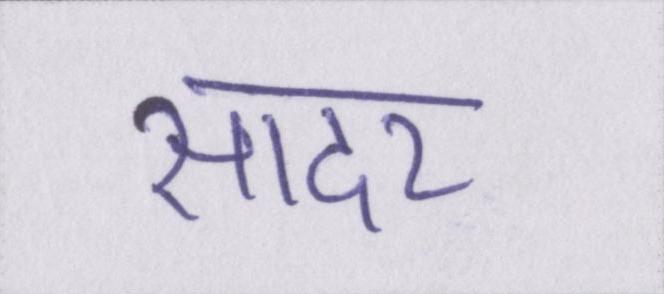 सादर